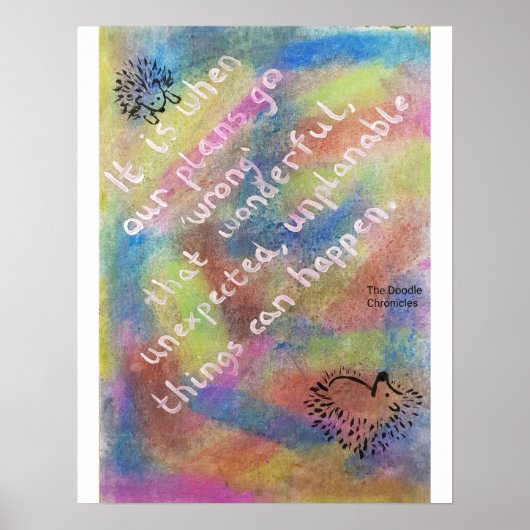 It is when
our plans go
'wrong'
that wonderful,
unexpected, unplanable
things can happen.
The Doodle
Chronicles